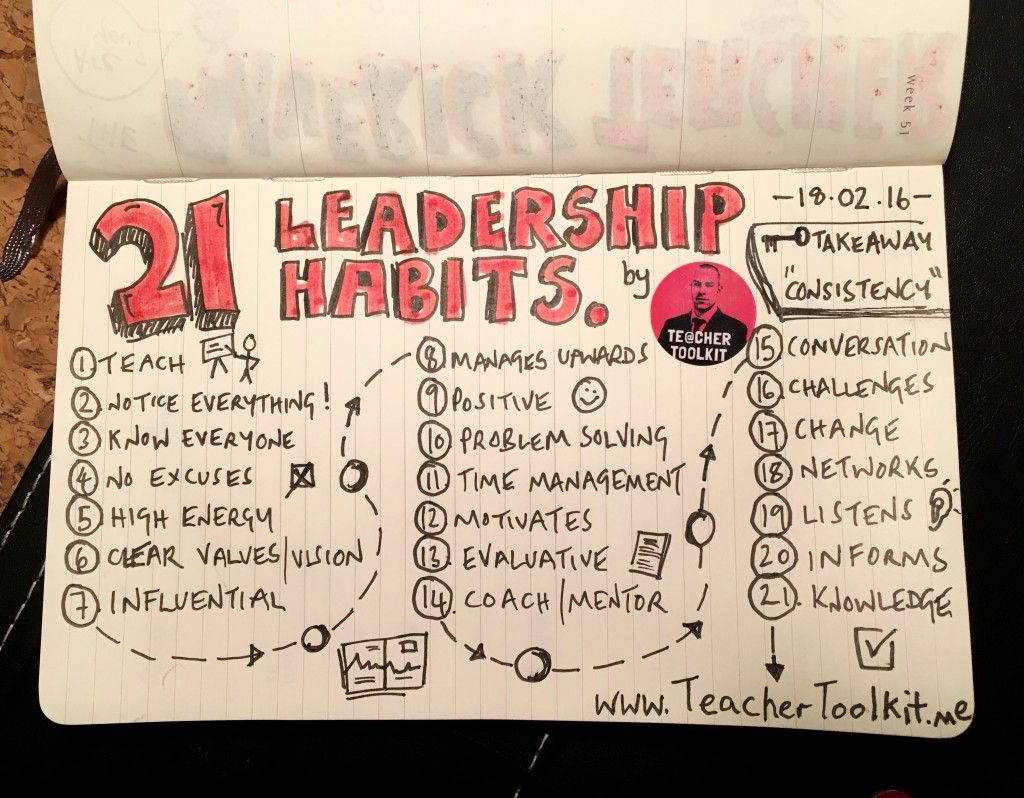 week 51
21 LEADERSHIP
HABITS.
by
TE@CHER
TOOLKIT
-18.02.16-
TAKEAWAY
"CONSISTENCY"
1 TEACH
2. NOTICE EVERYTHING!
3 KNOW EVERYONE
4 NO EXCUSES
5 HIGH ENERGY
6 CLEAR VALUES/VISION
7. INFLUENTIAL
8. MANAGES UPWARDS
9 POSITIVE
10 PROBLEM SOLVING
11 TIME MANAGEMENT
12 MOTIVATES
13. EVALUATIVE
14. COACH/MENTOR
15 CONVERSATION
16. CHALLENGES
17 CHANGE
18 NETWORKS
19 LISTENS
20 INFORMS
21. KNOWLEDGE
www.TeacherToolkit.me